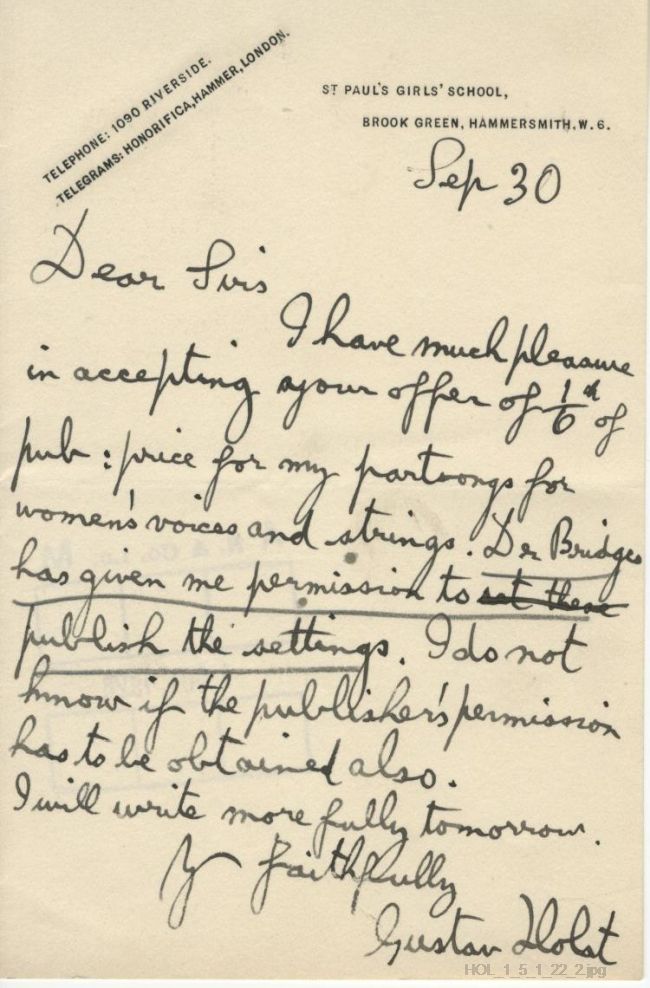 TELEPHONE: 1090 RIVERSIDE.
TELEGRAMS: HONORIFICA, HAMMER, LONDON.
ST PAUL'S GIRLS' SCHOOL,
BROOK GREEN, HAMMERSMITH, W. 6.
Sep 30
Dear Sirs
I have much pleasure
in accepting your offer of 1/6th of
pub: price for my partsongs for
women's voices and strings. Dr Bridges
has given me permission to set these
publish the settings. I do not
know if the publisher's permission
has to be obtained also.
I will write more fully tomorrow.
Y Faithfully
Gustav Holst
HOL_1_5_1_22_2.jpg